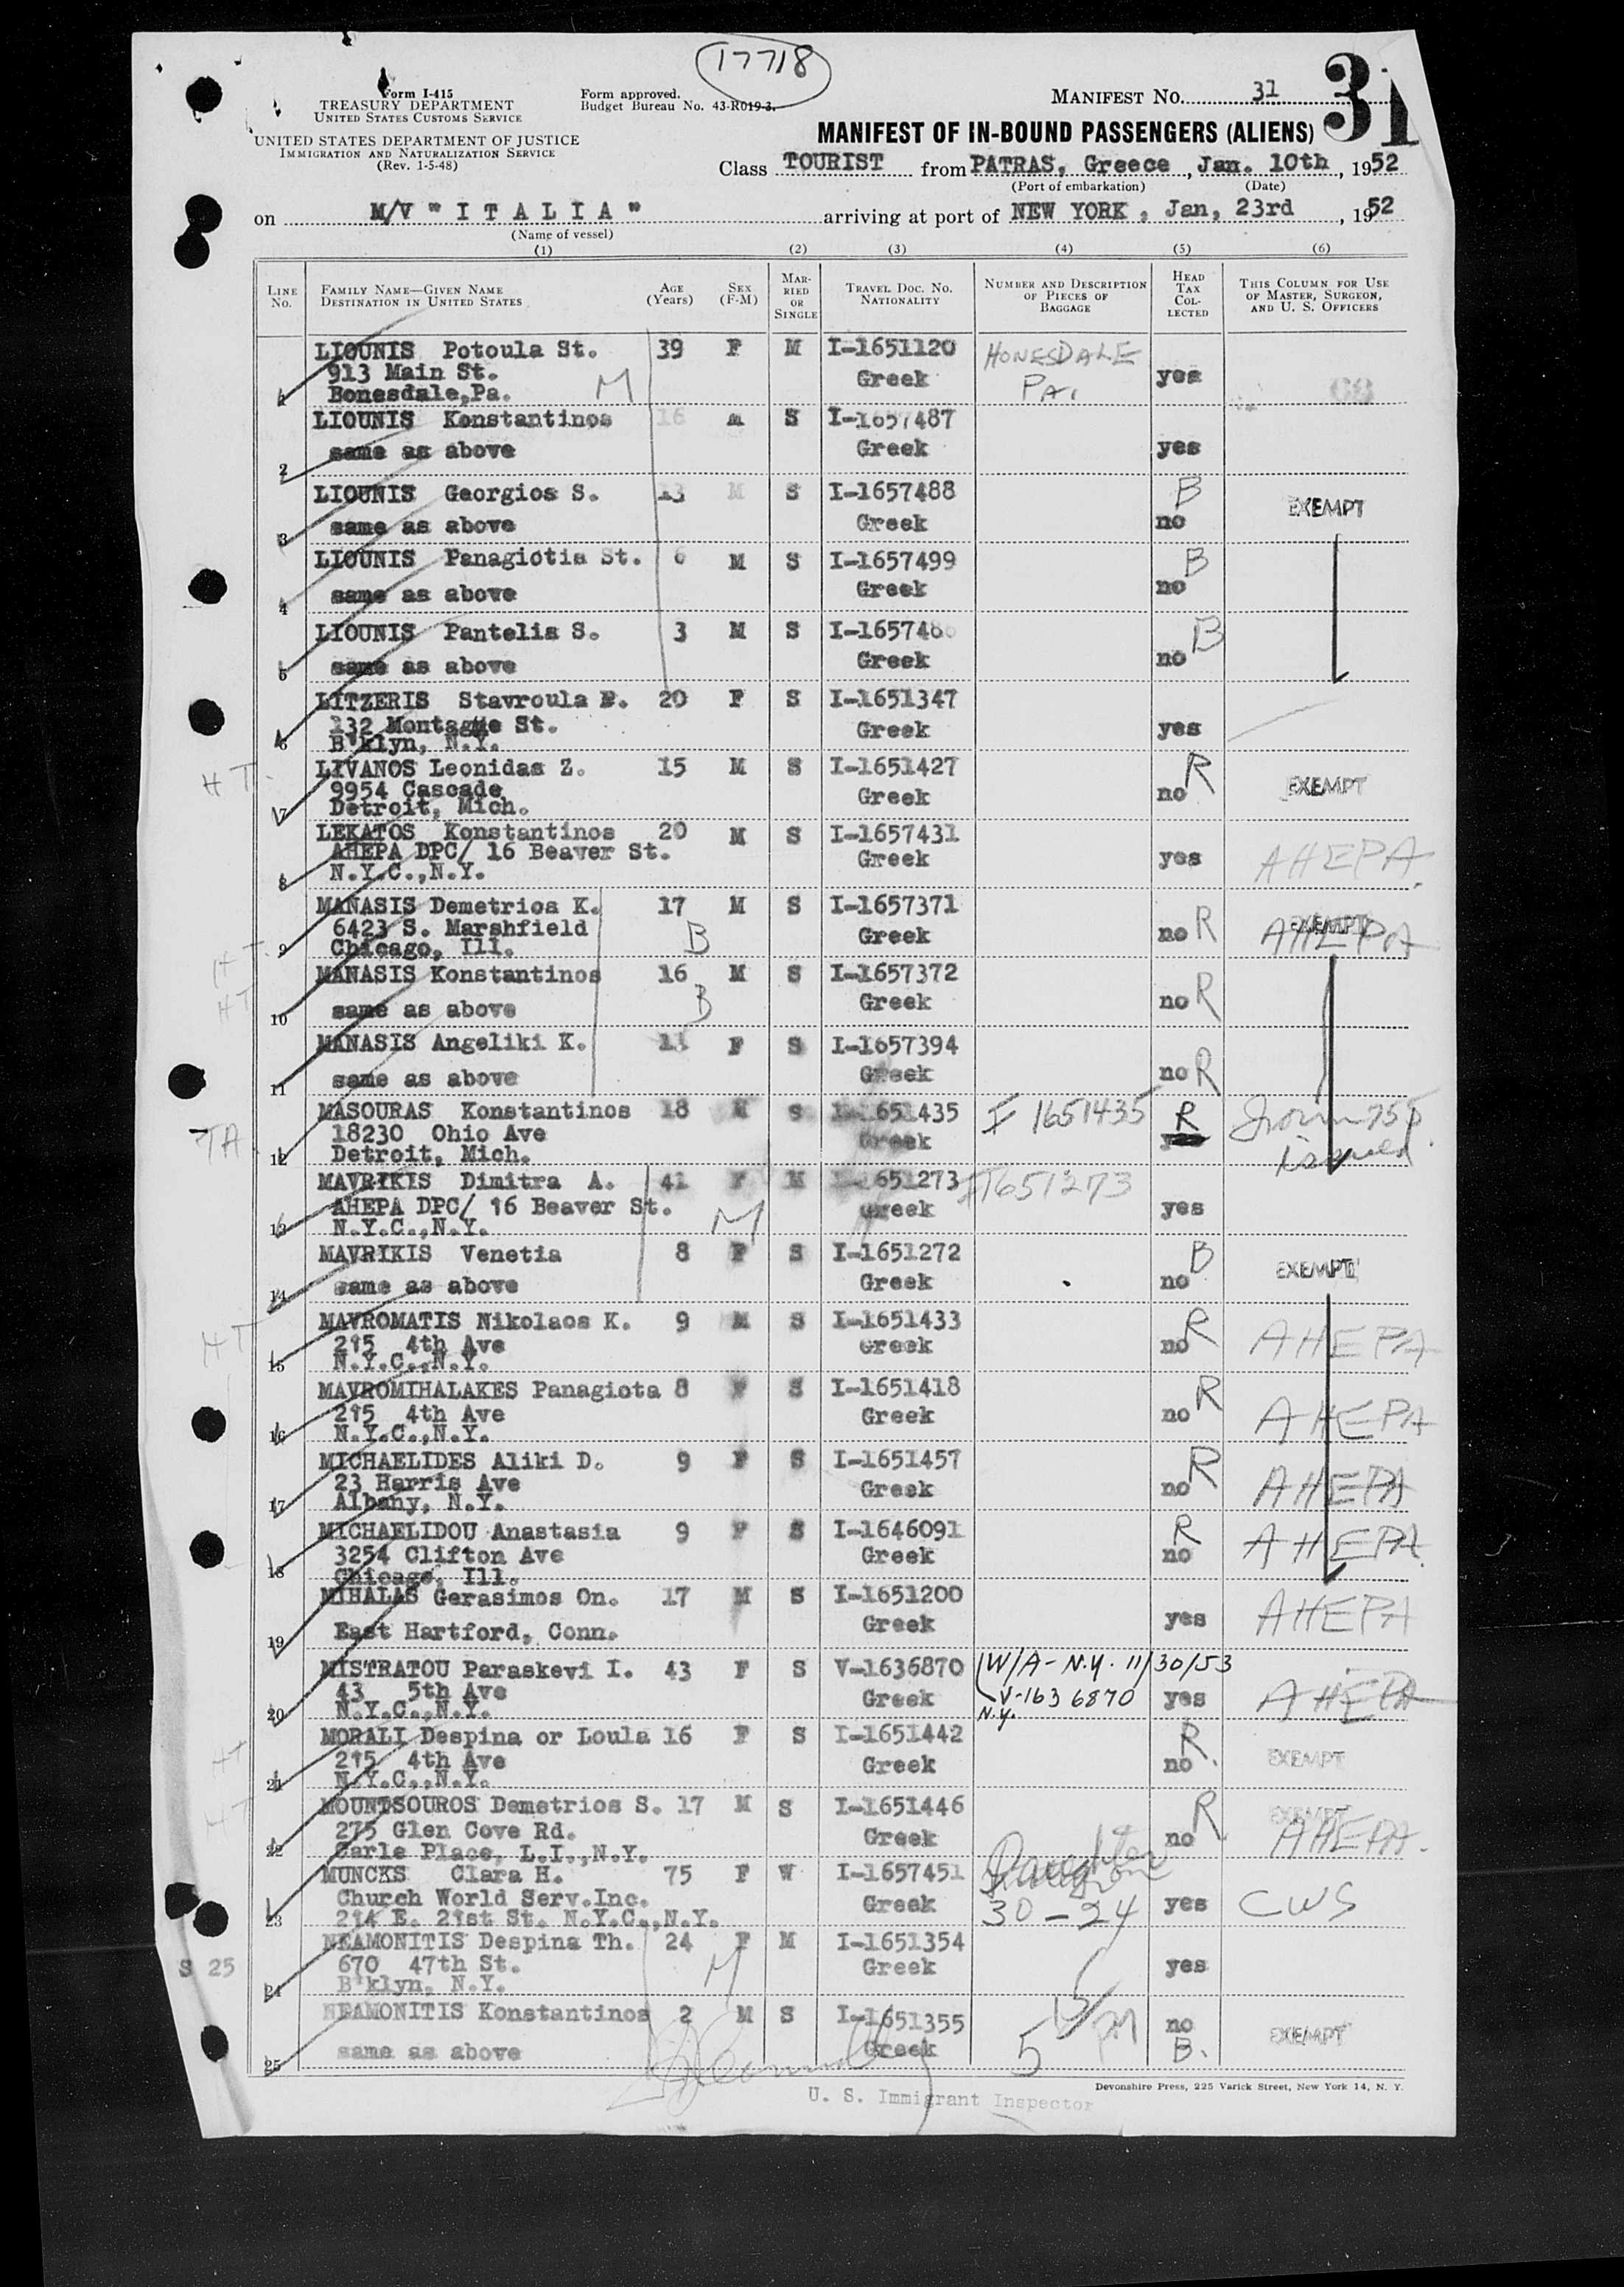 17718
Form I-415
TREASURY DEPARTMENT
UNITED STATES CUSTOMS SERVICE
UNITED STATES DEPARTMENT OF JUSTICE
IMMIGRATION AND NATURALIZATION SERVICE
(Rev. 1-5-48)
Form approved.
Budget Bureau No. 43-R019-3.
MANIFEST NO. 31
31
MANIFEST OF IN-BOUND PASSENGERS (ALIENS)
Class TOURIST from PATRAS, Greece, Jan. 10th, 1952
(Port of embarkation) (Date)
on M/V "ITALIA" arriving at port of NEW YORK, Jan, 23rd, 1952
(Name of vessel)
(1) (2) (3) (4) (5) (6)
LINE NO. FAMILY NAME—GIVEN NAME DESTINATION IN UNITED STATES AGE (Years) SEX (F-M) MARRIED OR SINGLE TRAVEL DOC. NO. NATIONALITY NUMBER AND DESCRIPTION OF PIECES OF BAGGAGE HEAD TAX COLLECTED THIS COLUMN FOR USE OF MASTER, SURGEON, AND U. S. OFFICERS
LIOUNIS Potoula St. 39 F M I-1651120 HONESDALE
913 Main St. Greek PA. yes
1 Bonesdale,Pa. M
LIOUNIS Konstantinos 16 M S I-1657487
2 same as above Greek yes
LIOUNIS Georgios S. 13 M S I-1657488 B EXEMPT
3 same as above Greek no
LIOUNIS Panagiotis St. 6 M S I-1657499 B
4 same as above Greek no
LIOUNIS Pantelis S. 3 M S I-165748 B
5 same as above Greek no
LITZERIS Stavroula 20 F S I-1651347
132 Montague St. Greek yes
6 B'klyn, N.Y.
HT LIVANOS Leonidas Z. 15 M S I-1651427 R EXEMPT
9954 Cascade Greek no
7 Detroit, Mich.
LEKATOS Konstantinos 20 M S I-1657431
AHEPA DPC/ 16 Beaver St. Greek yes AHEPA
8 N.Y.C.,N.Y.
MANASIS Demetrios K. 17 M S I-1657371 EXEMPT
6423 S. Marshfield B Greek no R AHEPA
HT 9 Chicago, Ill.
HT MANASIS Konstantinos 16 M S I-1657372
10 same as above B Greek no R
MANASIS Angeliki K. 11 F S I-1657394
11 same as above Greek no R
MASOURAS Konstantinos 18 M S I-1651435 I 1651435 R
TA 18230 Ohio Ave Greek issued
12 Detroit, Mich.
MAVRIKIS Dimitra A. 41 F M I-1651273 I1651273
AHEPA DPC/ 16 Beaver St. M Greek yes
13 N.Y.C.,N.Y.
MAVRIKIS Venetia 8 F S I-1651272 B EXEMPT
14 same as above Greek no
HT MAVROMATIS Nikolaos K. 9 M S I-1651433 R AHEPA
215 4th Ave Greek no
15 N.Y.C.,N.Y.
MAVROMIHALAKES Panagiota 8 F S I-1651418 R
215 4th Ave Greek no AHEPA
16 N.Y.C.,N.Y.
MICHAELIDES Aliki D. 9 F S I-1651457 R
23 Harris Ave Greek no AHEPA
17 Albany, N.Y.
MICHAELIDOU Anastasia 9 F S I-1646091 R AHEPA
3254 Clifton Ave Greek no
18 Chicago, Ill.
MIHALAS Gerasimos On. 17 M S I-1651200
19 East Hartford, Conn. Greek yes AHEPA
MISTRATOU Paraskevi I. 43 F S V-1636870 W/A - N.Y. 11/30/53
43 5th Ave Greek V-1636870 yes AHEPA
20 N.Y.C.,N.Y. N.Y.
HT MORALI Despina or Loula 16 F S I-1651442 R
215 4th Ave Greek no EXEMPT
21 N.Y.C.,N.Y.
HT MOUNTSOUROS Demetrios S. 17 M S I-1651446 R EXEMPT
275 Glen Cove Rd. Greek no AHEPA.
22 Carle Place, L.I.,N.Y.
MUNCKS Clara H. 75 F W I-1657451 Daughter
Church World Serv.Inc. Greek 30-24 yes CWS
23 214 E. 21st St. N.Y.C.,N.Y.
NEAMONITIS Despina Th. 24 F M I-1651354
S 25 670 47th St. M Greek yes
24 B'klyn, N.Y.
NEAMONITIS Konstantinos 2 M S I-1651355 no EXEMPT
25 same as above Greek 5 PM B.
Devonshire Press, 225 Varick Street, New York 14, N. Y.
U. S. Immigrant Inspector